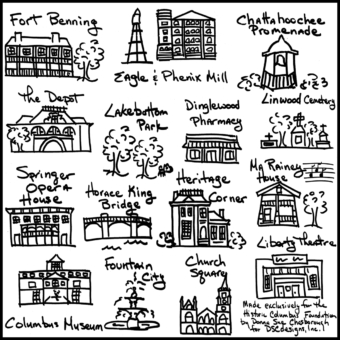 Fort Benning
Chattahoochee
Promenade
Eagle & Phenix Mill
The Depot
Lakebottom
Park
Dinglewood
Pharmacy
Linwood Cemetery
Springer
Opera
House
Horace King
Bridge
Heritage
Corner
Ma Rainey
House
Liberty Theatre
Columbus Museum
Fountain
City
Church
Square
Made exclusively for the
Historic Columbus Foundation
by Donna Sue
for DSCdesigns, Inc.